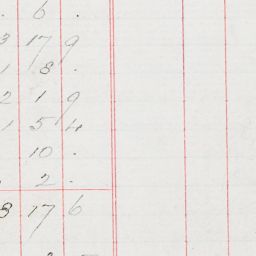 6 .
3 17 9
1 8 .
2 1 9
1 5 4
10 .
2 .
8 17 6